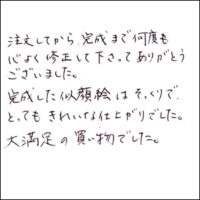 注文してから、完成まで何度も
心よく修正して下さってありがとう
ございました。
完成した似顔絵はそっくりで、
とってもきれいな仕上がりでした。
大満足の買い物でした。